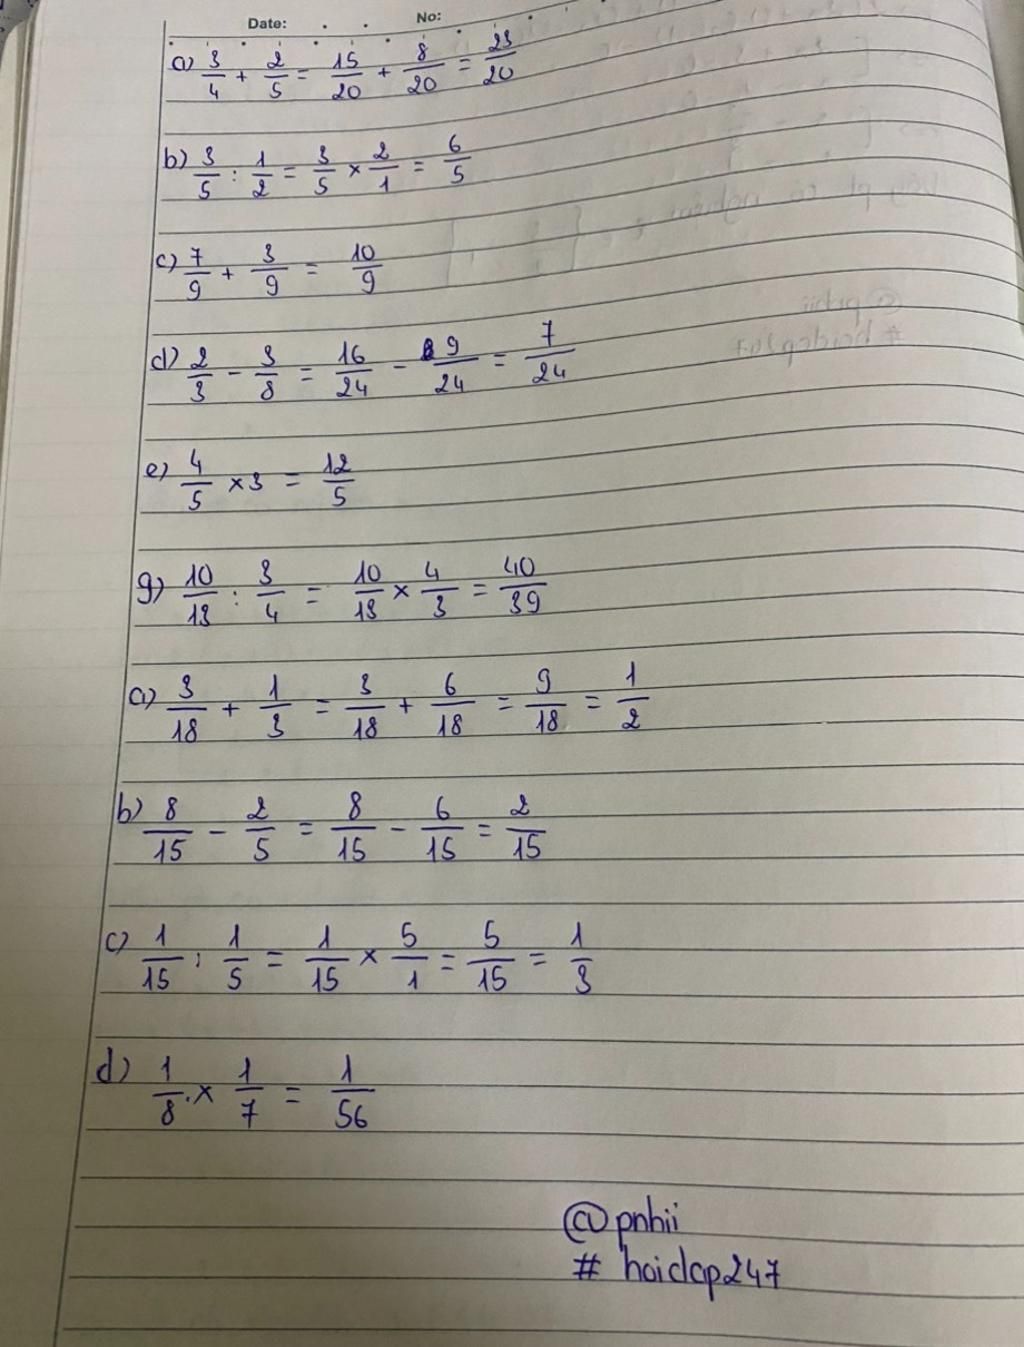 Date: No:
a) 3/4 + 2/5 = 15/20 + 8/20 = 23/20
b) 3/5 : 1/2 = 3/5 × 2/1 = 6/5
c) 7/9 + 3/9 = 10/9
d) 2/3 - 3/8 = 16/24 - 9/24 = 7/24
e) 4/5 × 3 = 12/5
g) 10/13 : 3/4 = 10/13 × 4/3 = 40/39
a) 3/18 + 1/3 = 3/18 + 6/18 = 9/18 = 1/2
b) 8/15 - 2/5 = 8/15 - 6/15 = 2/15
c) 1/15 : 1/5 = 1/15 × 5/1 = 5/15 = 1/3
d) 1/8 . × 1/7 = 1/56
@pnhii
# hoidap247